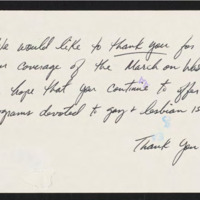 We would like to thank you for
coverage of the March on Was
hope that you continue to offer
grams devoted to gay & lesbian is
Thank You